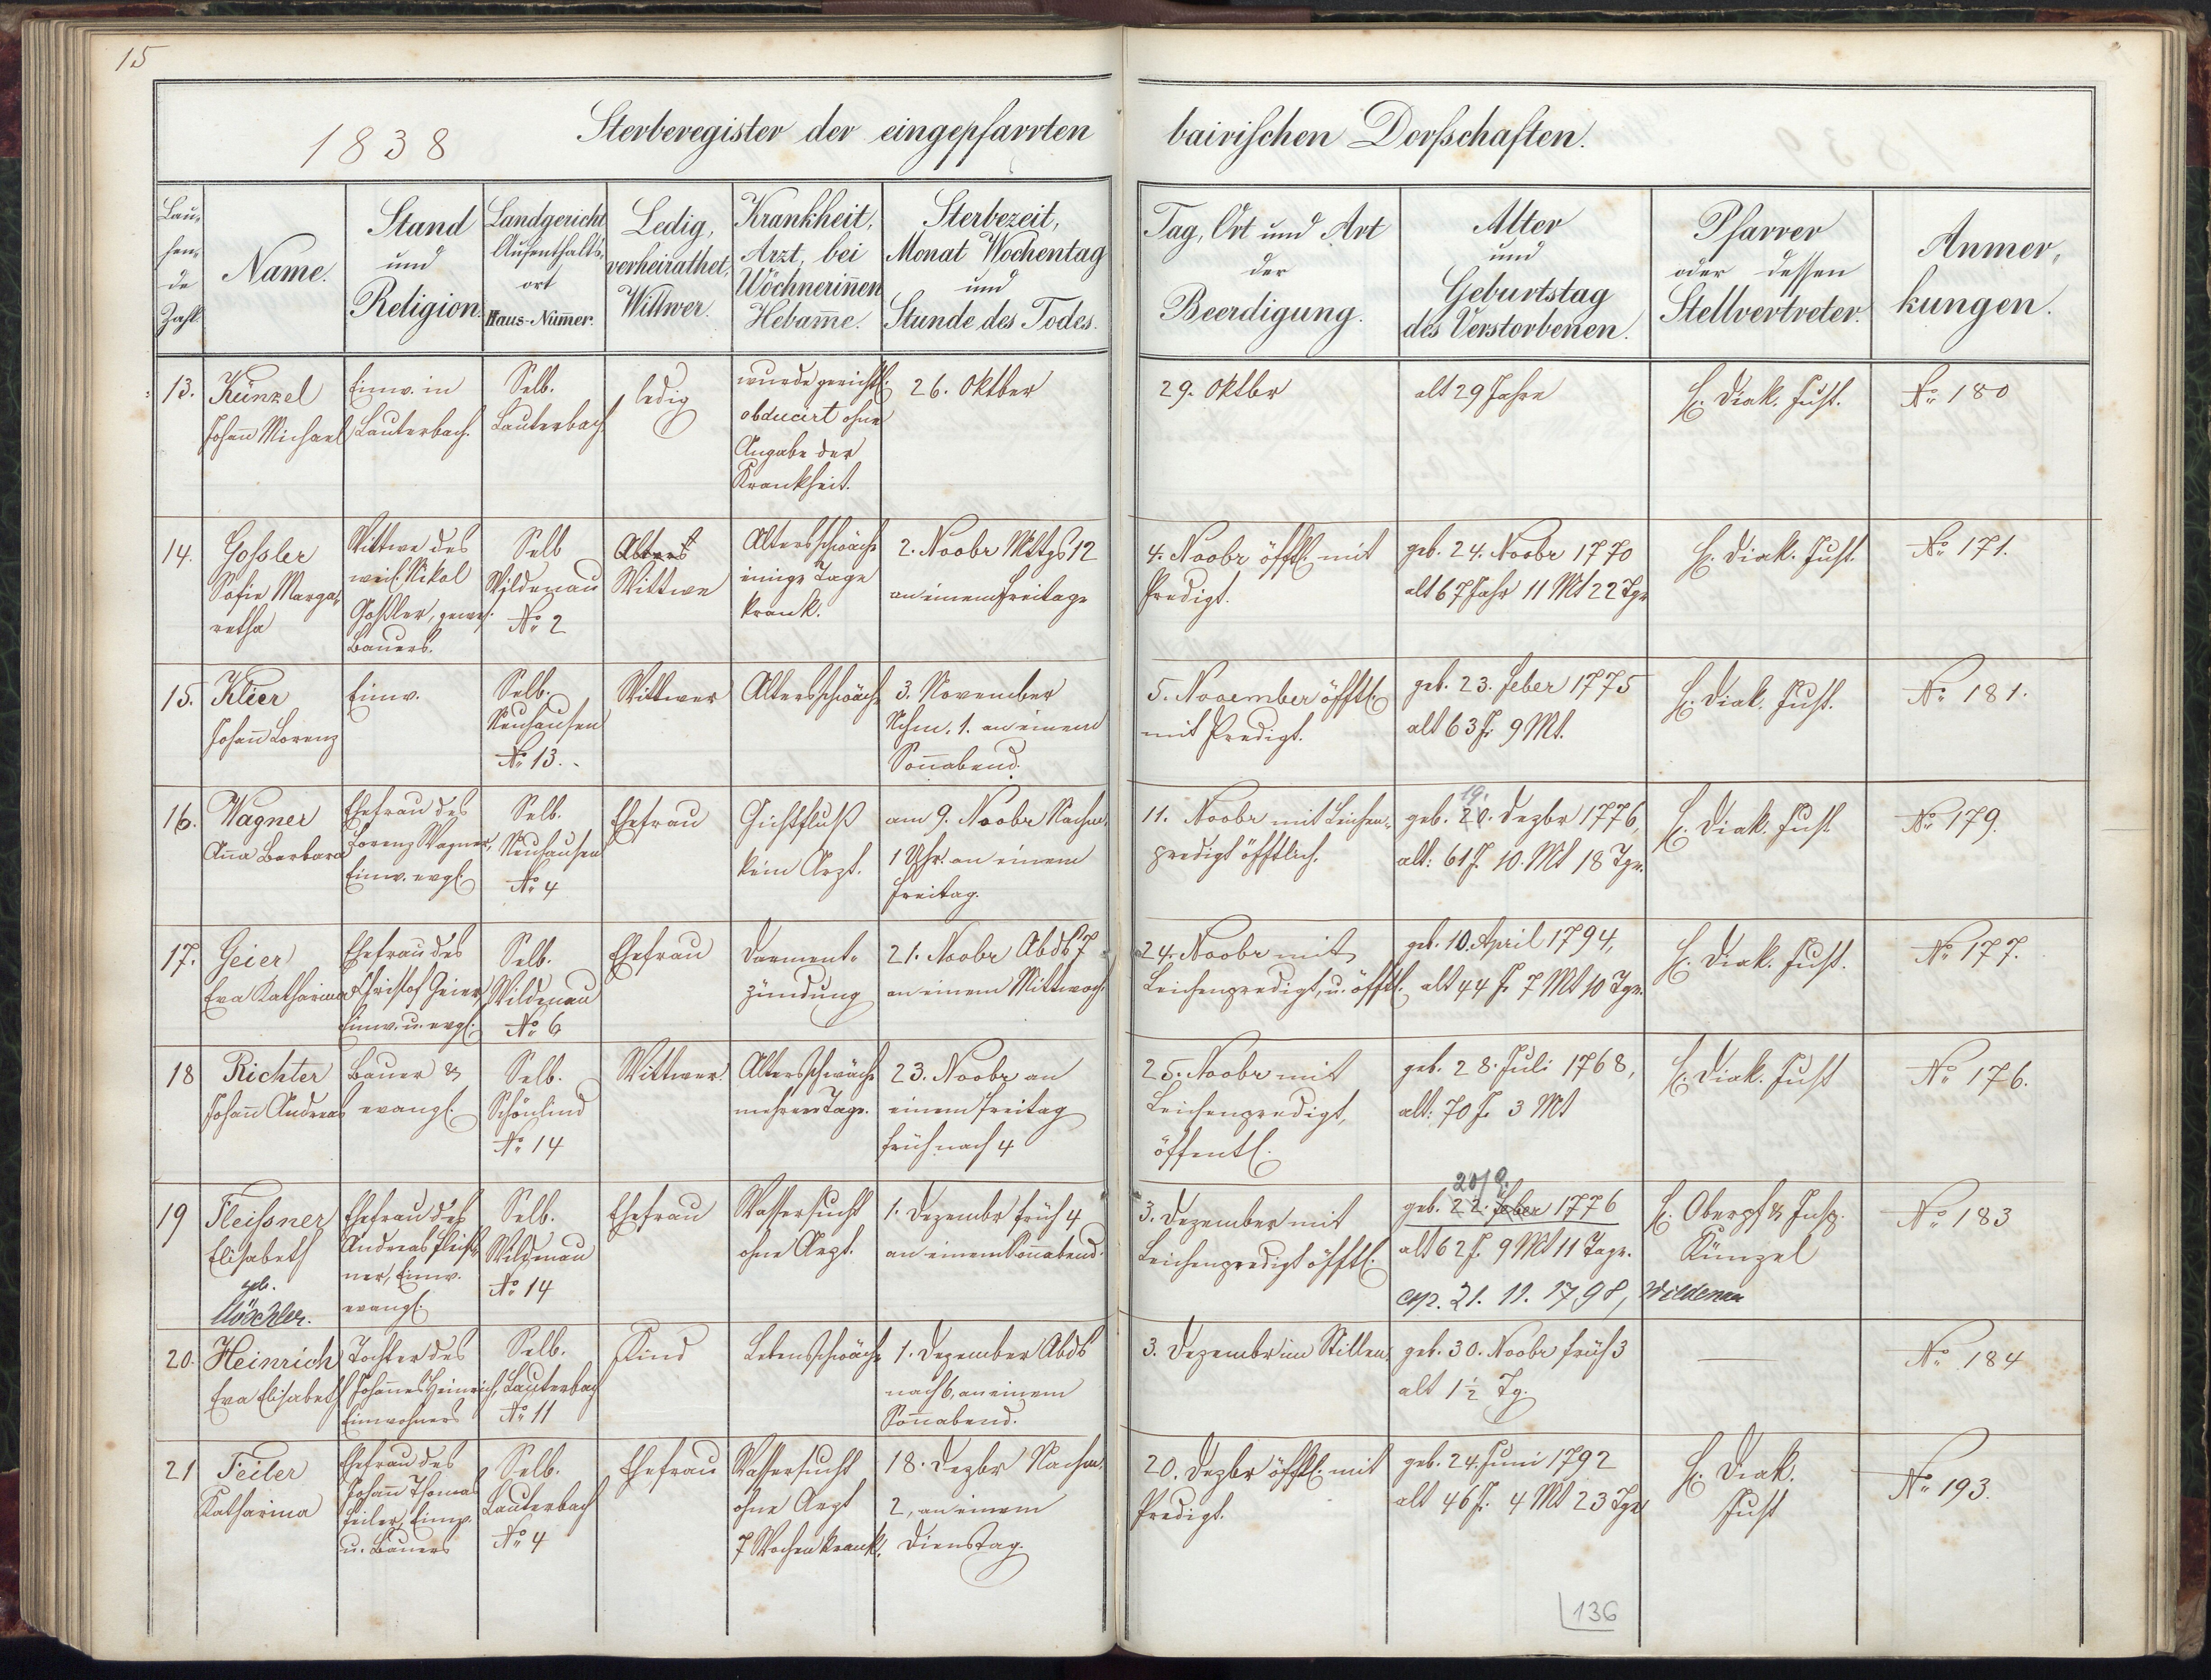 15
1838
Sterberegister der eingepfarrten bairischen Dorfschaften.
Lau-
fen-
de
Zahl.
Name.
Stand
und
Religion.
Landgericht,
Aufenthalts-
ort
Haus-Num̅er.
Ledig,
verheirathet,
Wittwer.
Krankheit,
Arzt, bei
Wöchnerin̅en
Hebam̅e.
Sterbezeit,
Monat Wochentag
und
Stunde des Todes.
Tag, Ort und Art
der
Beerdigung.
Alter
und
Geburtstag
des Verstorbenen.
Pfarrer
oder dessen
Stellvertreter.
Anmer-
kungen.
13.
Künzel
Johan̅ Michael
Einw. in
Lauterbach.
Selb.
Lauterbach
ledig
wurde gerichtl.
obducirt ohne
Angabe der
Krankheit.
26. Oktber
29. Oktbr
alt 29 Jahre
H. Diak. Just.
No 180
14.
Goßler
Sofie Marga-
retha
Wittwe des
weil. Nikol
Goßler, gewes.
Bauers.
Selb
Wildenau
No 2
Alters
Wittwe
Altersschwäche
einige Tage
krank.
2. Novbr Mttgs 12
an einem Freitage
4. Novbr öfftl. mit
Predigt.
geb. 24. Novbr 1770
alt 67 Jahr 11 Mt 22 Tge
H. Diak. Just.
No 171.
15.
Klier
Johan̅ Lorenz
Einw.
Selb.
Neuhausen
No 13.
Wittwer
Altersschwäche
3. November
Nchm. 1. an einem
Son̅abend.
5. November öfftl.
mit Predigt.
geb. 23. Feber 1775
alt 63 J. 9 Mt.
H. Diak. Just.
No 181.
16.
Wagner
An̅a Barbara
Ehefrau des
Lorenz Wagner,
Einw. evgl.
Selb.
Neuhausen
No 4
Ehefrau
Gichtfluß
kein Arzt.
am 9. Novbr Nachm.
1 Uhr an einem
Freitag.
11. Novbr mit Leichen-
predigt öfftlich.
19.
geb. 20. Dezbr 1776,
alt: 61 J. 10. Mt 18 Tge.
H. Diak. Just
No 179.
17.
Geier
Eva Katharina
Ehefrau des
Christof Geier
Einw. u. evgl.
Selb.
Wildenau
No 6
Ehefrau
Darment-
zündung
21. Novbr Abds 7
an einem Mittwoch
24. Novbr mit
Leichenpredigt, u. öfftl.
geb. 10. April 1794,
alt 44 J. 7 Mt 10 Tge.
H. Diak. Just.
No 177.
18
Richter
Johan̅ Andreas
Bauer &
evangl.
Selb.
Schönlind
No 14
Wittwer.
Altersschwäche
mehrere Tage.
23. Novbr an
einem Freitag
früh nach 4
25. Novbr mit
Leichenpredigt,
öffentl.
geb. 28. Juli 1768,
alt: 70 J. 3 Mt
H. Diak. Just
No 176.
19
Fleißner
Elisabeth
geb.
Möschler.
Ehefrau des
Andreas Fleiß-
ner, Einw.
evangl.
Selb.
Wildenau
No 14
Ehefrau
Wassersucht
ohne Arzt.
1. Dezember früh 4
an einem Son̅abend.
3. Dezember mit
Leichenpredigt öfftl.
geb. 22. Feber 1776
alt 62 J. 9 Mt 11 Tage.
cop. 21. 11. 1798, Wildenau
H. Oberpf. & Insp.
Künzel
No 183
20.
Heinrich
Eva Elisabeth
Tochter des
Johan̅es Heinrich,
Einwohners
Selb.
Lauterbach
No 11
Kind
Lebensschwäche
1. Dezember Abds
nach 6, an einem
Son̅abend.
3. Dezembr im Stillen.
geb. 30. Novbr früh 3
alt 1½ Tg.
No 184
21
Feiler
Katharina
Ehefrau des
Johan̅ Thomas
Feiler, Einw.
u. Bauers
Selb.
Lauterbach
No 4
Ehefrau
Wassersucht
ohne Arzt
7 Wochen krank.
18. Dezbr Nachm.
2, an einem
Dienstag.
20. Dezbr öfftl. mit
Predigt.
geb. 24. Juni 1792
alt 46 J. 4 Mt 23 Tge
H. Diak.
Just
No 193.
136